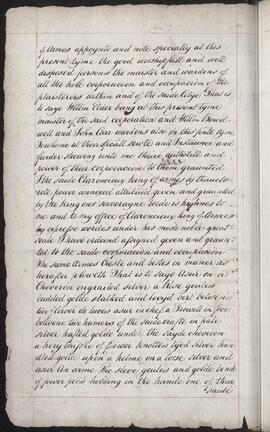 of Armes appoynte and note specially at this
present tyme the good worshipfull and well
disposed persons the maister and wardens of
all the hole corporacion and occupacion of the
plaisterers within and of the saide Citye That is
to saye Willm Elder being at this present tyme
maister of the said corporacion and Willm Bowd
well and John Carr wardens also in this tyme
To whome at their speciall and Instaunce and
further shewing unto me there auctoritie and
power of their Corporacion to them graunted
The saide Clarencieux king of armes by thauctho
rete power annexed attributed given and graunted
by the king our soveraigne lorde is highnes to
me and to my office of Clarencieux king of Armes
by expresse wordes under his moste noble great
seale I have ordened assigned geven and graun
ted to the saide corporacion and occupacion
the same Armes Creste and bestes in maner as
herafter foloweth That is to saye Asur on a
Cheveron engrailed silver a Rose geules
budded golde stalked and levyd vert betwene
two flowre de luces asur in chef a Trewell in fee
betwene two hamers of the saide crafte in pale
silver hafted golde under the sayde cheveron
a brushe of fower knottes tyed silver han
dled golde upon a helme on a torse silver and
asur An arme the sleve geules and golde bende
of power pees holding in the hande one of their
saide